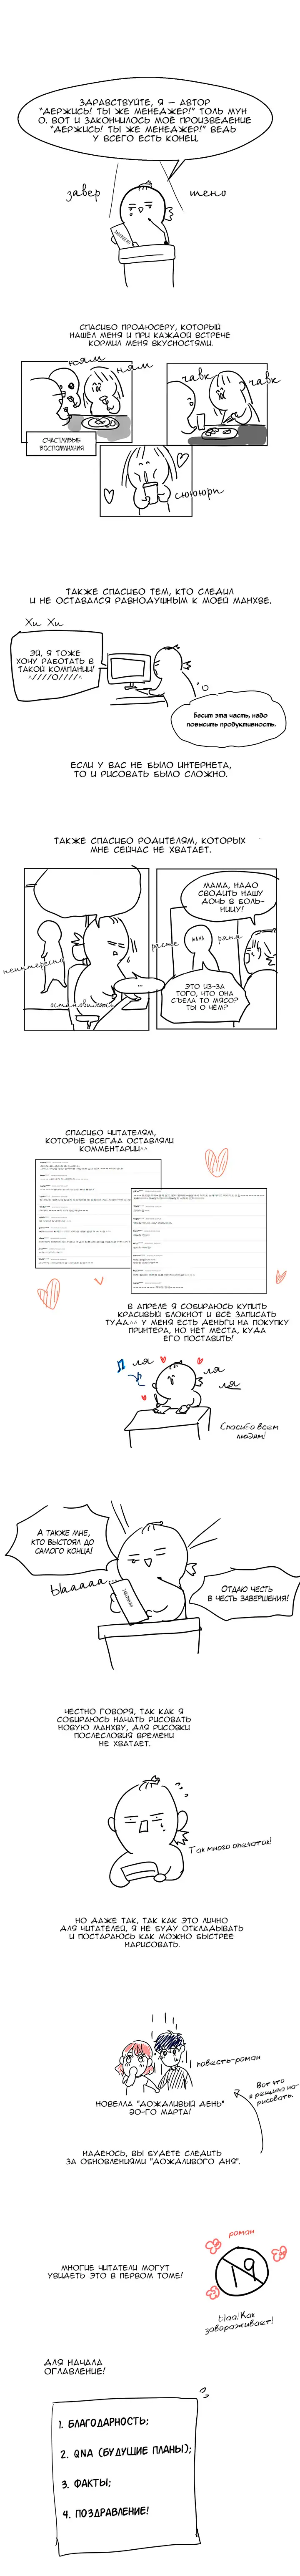 ЗДРАВСТВУЙТЕ, Я – АВТОР
"ДЕРЖИСЬ! ТЫ ЖЕ МЕНЕДЖЕР!" ТОЛЬ МУН
О. ВОТ И ЗАКОНЧИЛОСЬ МОЁ ПРОИЗВЕДЕНИЕ
"ДЕРЖИСЬ! ТЫ ЖЕ МЕНЕДЖЕР!" ВЕДЬ
У ВСЕГО ЕСТЬ КОНЕЦ.
завер
шено
СПАСИБО ПРОДЮСЕРУ, КОТОРЫЙ
НАШЁЛ МЕНЯ И ПРИ КАЖДОЙ ВСТРЕЧЕ
КОРМИЛ МЕНЯ ВКУСНОСТЯМИ.
ням
ням
СЧАСТЛИВЫЕ
ВОСПОМИНАНИЯ
чавк
чавк
сюююрп
ТАКЖЕ СПАСИБО ТЕМ, КТО СЛЕДИЛ
И НЕ ОСТАВАЛСЯ РАВНОДУШНЫМ К МОЕЙ МАНХВЕ.
Хи Хи
ЭЙ, Я ТОЖЕ
ХОЧУ РАБОТАТЬ В
ТАКОЙ КОМПАНИИ!
^////О////^
Бесит эта часть, надо
повысить продуктивность.
ЕСЛИ У ВАС НЕ БЫЛО ИНТЕРНЕТА,
ТО И РИСОВАТЬ БЫЛО СЛОЖНО.
ТАКЖЕ СПАСИБО РОДИТЕЛЯМ, КОТОРЫХ
МНЕ СЕЙЧАС НЕ ХВАТАЕТ.
неинтересно
остановилась
...
МАМА, НАДО
СВОДИТЬ НАШУ
ДОЧЬ В БОЛЬ-
НИЦУ!
расте
МАМА
рана
ЭТО ИЗ-ЗА
ТОГО, ЧТО ОНА
СЪЕЛА ТО МЯСО?
ТЫ О ЧЕМ?
СПАСИБО ЧИТАТЕЛЯМ,
КОТОРЫЕ ВСЕГДА ОСТАВЛЯЛИ
КОММЕНТАРИИ^^
В АПРЕЛЕ Я СОБИРАЮСЬ КУПИТЬ
КРАСИВЫЙ БЛОКНОТ И ВСЁ ЗАПИСАТЬ
ТУДА^^ У МЕНЯ ЕСТЬ ДЕНЬГИ НА ПОКУПКУ
ПРИНТЕРА, НО НЕТ МЕСТА, КУДА
ЕГО ПОСТАВИТЬ!
ля
ля
ля
Спасибо всем
людям!
А ТАКЖЕ МНЕ,
КТО ВЫСТОЯЛ ДО
САМОГО КОНЦА!
Ыааааа...
ОТДАЮ ЧЕСТЬ
В ЧЕСТЬ ЗАВЕРШЕНИЯ!
ЧЕСТНО ГОВОРЯ, ТАК КАК Я
СОБИРАЮСЬ НАЧАТЬ РИСОВАТЬ
НОВУЮ МАНХВУ, ДЛЯ РИСОВКИ
ПОСЛЕСЛОВИЯ ВРЕМЕНИ
НЕ ХВАТАЕТ.
Так много опечаток!
НО ДАЖЕ ТАК, ТАК КАК ЭТО ЛИЧНО
ДЛЯ ЧИТАТЕЛЕЙ, Я НЕ БУДУ ОТКЛАДЫВАТЬ
И ПОСТАРАЮСЬ КАК МОЖНО БЫСТРЕЕ
НАРИСОВАТЬ.
повесть-роман
Вот что
я решила на-
рисовать.
НОВЕЛЛА "ДОЖДЛИВЫЙ ДЕНЬ"
30-ГО МАРТА!
НАДЕЮСЬ, ВЫ БУДЕТЕ СЛЕДИТЬ
ЗА ОБНОВЛЕНИЯМИ "ДОЖДЛИВОГО ДНЯ".
роман
19
МНОГИЕ ЧИТАТЕЛИ МОГУТ
УВИДЕТЬ ЭТО В ПЕРВОМ ТОМЕ!
Ыаа! Как
завораживает!
ДЛЯ НАЧАЛА
ОГЛАВЛЕНИЕ!
1. БЛАГОДАРНОСТЬ;
2. QNA (БУДУЩИЕ ПЛАНЫ);
3. ФАКТЫ;
4. ПОЗДРАВЛЕНИЕ!